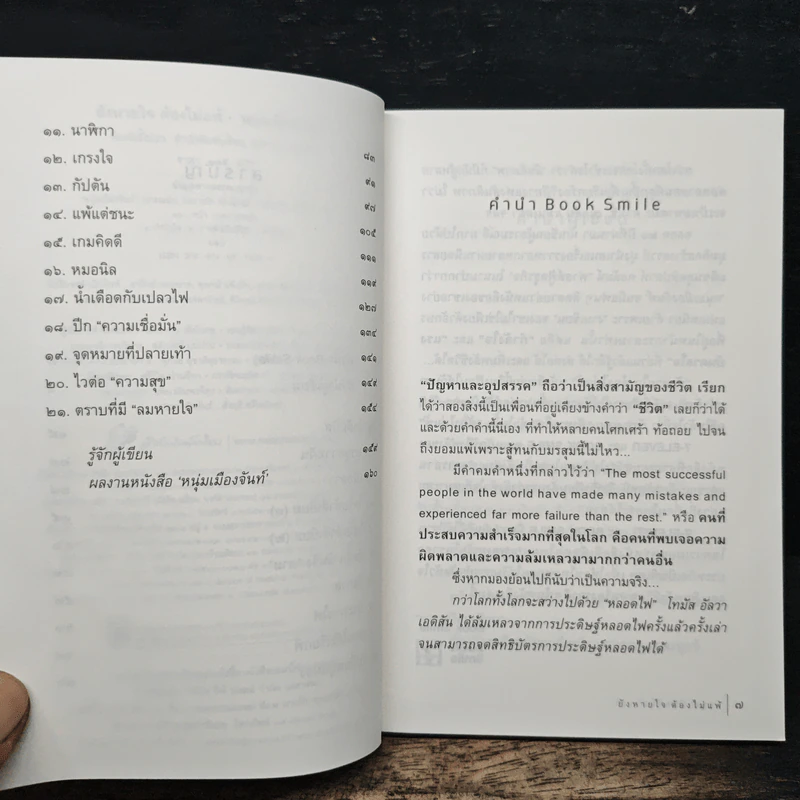 ๑๑. นาฬิกา ๘๓
๑๒. เกรงใจ ๙๑
๑๓. กัปตัน ๙๗
๑๔. แพ้แต่ชนะ ๑๐๕
๑๕. เกมคิตตี้ ๑๑๑
๑๖. หมอนิล ๑๑๙
๑๗. น้ำเดือดกับเปลวไฟ ๑๒๗
๑๘. ปีก “ความเชื่อมั่น” ๑๓๔
๑๙. จุดหมายที่ปลายเท้า ๑๔๑
๒๐. ไวต่อ “ความสุข” ๑๔๙
๒๑. ตราบที่มี “ลมหายใจ” ๑๕๔
รู้จักผู้เขียน ๑๕๙
ผลงานหนังสือ ‘หนุ่มเมืองจันท์’ ๑๖๐
คำนำ Book Smile
“ปัญหาและอุปสรรค” ถือว่าเป็นสิ่งสามัญของชีวิต เรียก
ได้ว่าสองสิ่งนี้เป็นเพื่อนที่อยู่เคียงข้างคำว่า “ชีวิต” เลยก็ว่าได้
และด้วยคำคำนี้นี่เอง ที่ทำให้หลายคนโศกเศร้า ท้อถอย ไปจน
ถึงยอมแพ้เพราะสู้ทนกับมรสุมนี้ไม่ไหว...
มีคำคมคำหนึ่งที่กล่าวไว้ว่า “The most successful
people in the world have made many mistakes and
experienced far more failure than the rest.” หรือ คนที่
ประสบความสำเร็จมากที่สุดในโลก คือคนที่พบเจอความ
ผิดพลาดและความล้มเหลวมามากกว่าคนอื่น
ซึ่งหากมองย้อนไปก็นับว่าเป็นความจริง...
กว่าโลกทั้งโลกจะสว่างไปด้วย “หลอดไฟ” โทมัส อัลวา
เอดิสัน ได้ล้มเหลวจากการประดิษฐ์หลอดไฟครั้งแล้วครั้งเล่า
จนสามารถจดสิทธิบัตรการประดิษฐ์หลอดไฟได้
ยังหายใจ ต้องไม่แพ้ | ๗